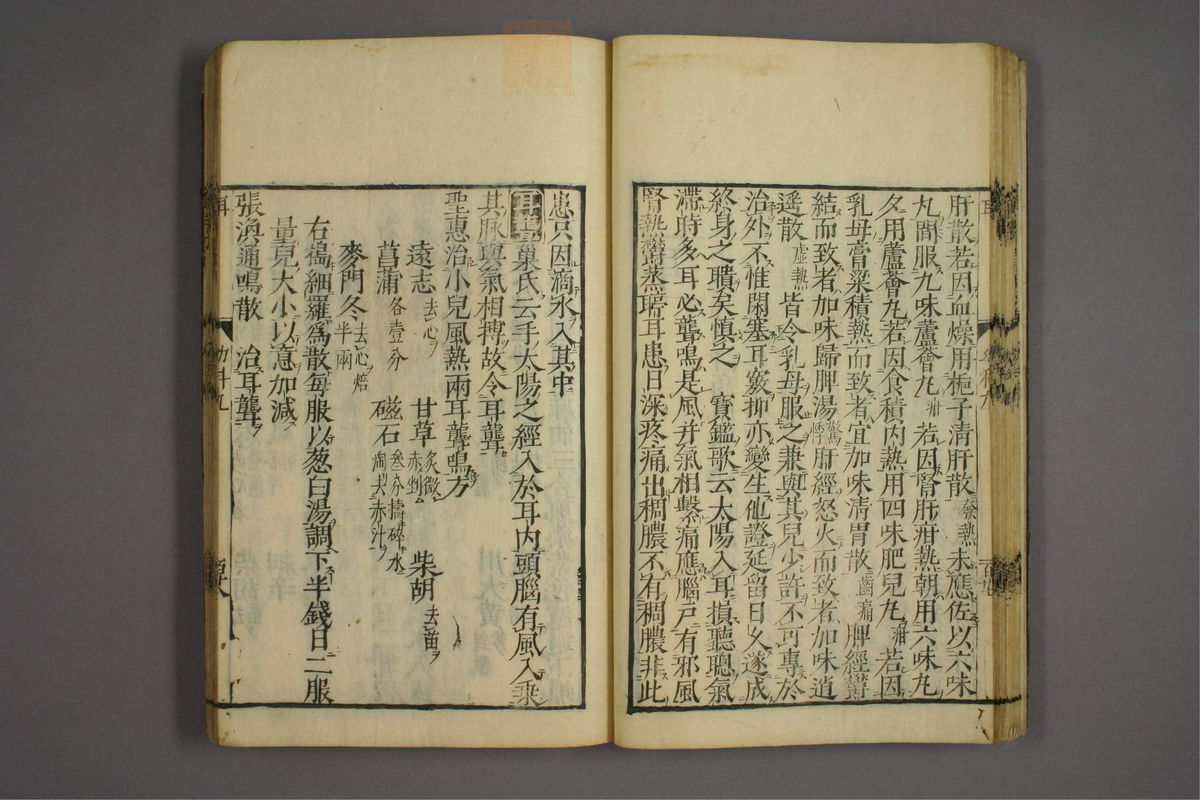 肝散若因血燥用梔子清肝散發熱未應佐以六味
丸間服九味蘆薈丸疳若因腎肝疳熱朝用六味丸
夕用蘆薈丸若因食積內熱用四味肥兒丸疳若因
乳母膏粱積熱而致者宜加味清胃散齒痛脾經鬱
結而致者加味歸脾湯驚悸肝經怒火而致者加味逍
遥散虛熱皆令乳母服之兼與其兒少許不可專於
治外不惟閉塞耳竅抑亦變生他證延留日久遂成
終身之聵矣慎之 寶鑑歌云太陽入耳損聽聰氣
滯時多耳必聾鳴是風并氣相擊痛應腦戶有邪風
腎熱鬱蒸聤耳患日深疼痛出稠膿不有稠膿非此
患只因滴水入其中
耳聾巢氏云手太陽之經入於耳內頭腦有風入乘
其脉與氣相搏故令耳聾
聖惠治小兒風熱兩耳聾鳴方
遠志去心 甘草炙微赤剉 柴胡去苗
菖蒲各壹分 磁石叁分擣碎水淘去赤汁
麥門冬去心焙半兩
右擣細羅為散每服以葱白湯調下半錢日二服
量兒大小以意加減
張渙通鳴散 治耳聾
耳
幼科九